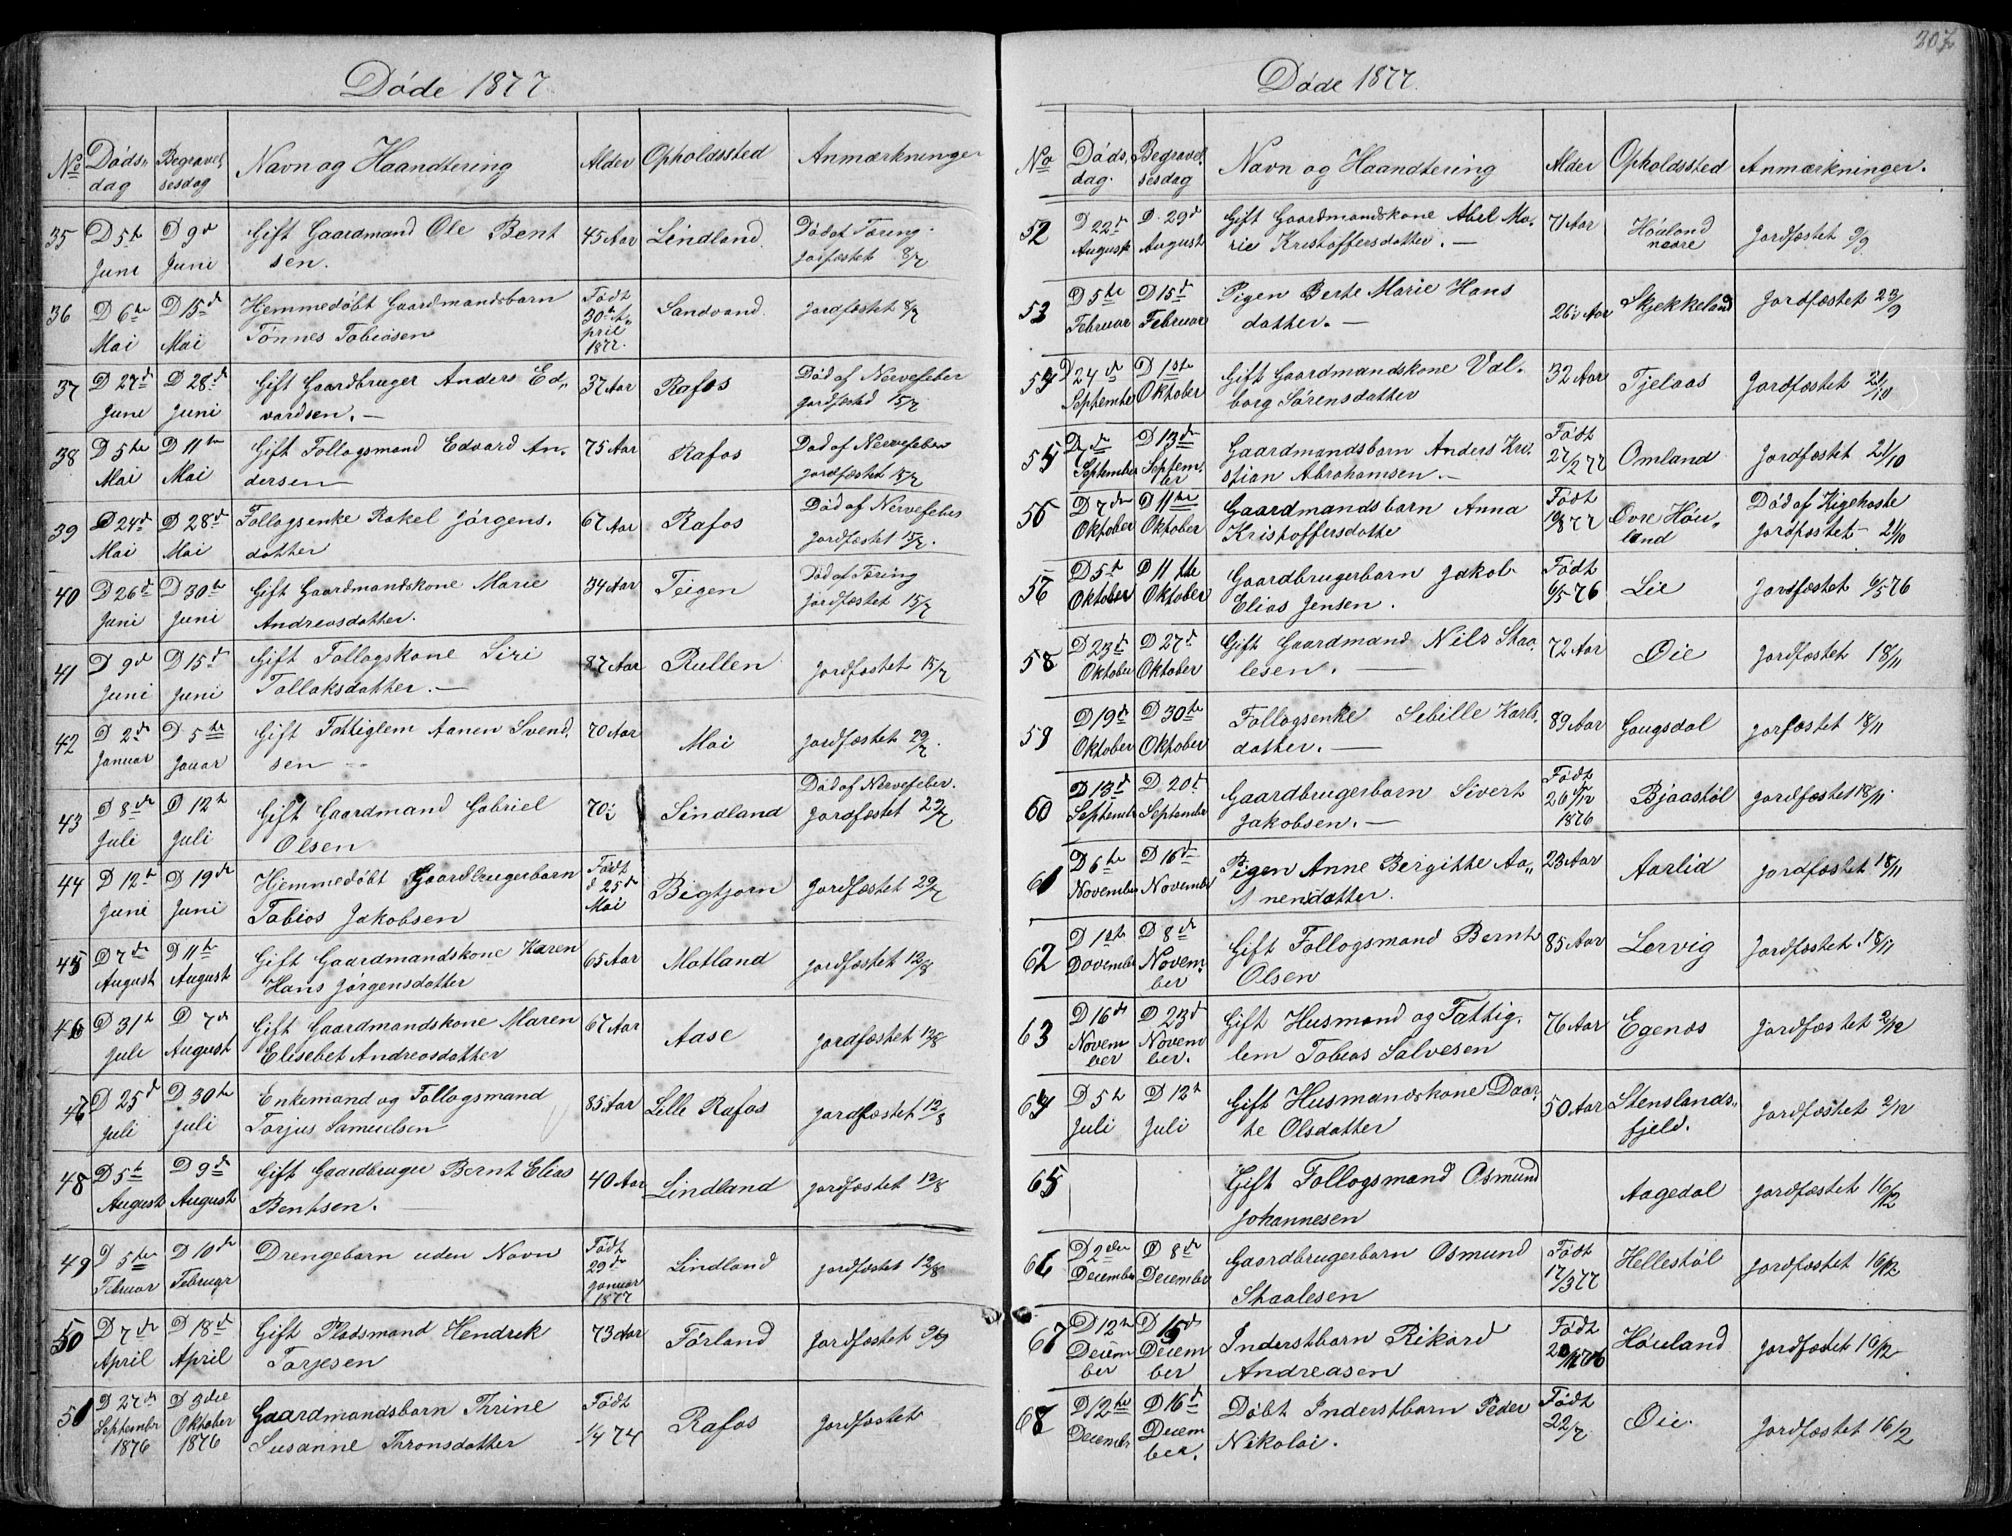 Døde 1877.
No Døds- dag Begravel- sesdag Navn og Haandtering Alder Opholdssted Anmærkninger
35 D 5te Juni D 9d Juni Gift Gaardmand Ole Bentsen. 45 Aar Lindland. Død af Tæring. jorfæstet 8/7
36 D 6te Mai D 15d Mai Hjemmedøbt Gaardmandsbarn Tønnes Tobiasen Født 30te April 1877. Sandvand. jordfæstet 8/7
37 D 27d June D 28d Juni Gift Gaardbruger Anders Edvardsen. 37 Aar Rafos Død af Nervefeber jordfæsted 15/7
38 D 5te Mai D 11te Mai Gift Follogsmand Edvard Andersen 75 Aar Rafos Død af Nervefeber jordfæstet 15/7
39 D 24d Mai D 28d Mai Follogsenke Rakel Jørgensdatter 67 Aar Rafos Død af Nervefeber jordfæstet 15/7.
40 D 26d Juni D 30te Juni Gift Gaardmandskone Marie Andreasdatter. 34 Aar Teigen Død af Tæring jordfæstet 15/7
41 D 9d Juni D 15d Juni Gift Follogskone Siri Tollaksdatter. 87 Aar Rullen jordfæstet 15/7
42 D 2d Januar D 5te Jauar Gift Fattiglem Aanen Svendsen 70 Aar Moi jordfæstet 29/7.
43 D 8de Juli D 12te Juli Gift Gaardmand Gabriel Olsen 70 Lindland Død af Nervefeber. jordfæstet 29/7
44 D 12te June D 19de Juni Hjemmedøbt Gaardbrugerbarn Tobias Jakobsen Født d 25de Mai Bigtjorn jordfæstet 29/7
45 D 7de August D 11te August Gift Gaardmandskone Karen Hans Jørgensdatter 65 Aar Motland jordfæstet 12/8
46 D 31te Juli D 7de August Gift Gaardmandskone Maren Elisebet Andreasdatter 67 Aar Aase jordfæstet 12/8
47 D 25d Juli D 30te Juli Enkemand og Follogsmand Torjus Samuelsen 85 Aar Lille Rafos jordfæstet 12/8
48 D 5te August D 9de August Gift Gaardbruger Bernt Elias Bentsen. 40 Aar Lindland jordfæstet 12/8
49 D 5te Februar D 10de Februar Drengebarn uden Navn Født 29de Januar 1877 Lindland jordfæstet 12/8
50 D 7de April D 18de April Gift Pladsmand Hendrik Torjesen 73 Aar Førland jordfæstet 9/9
51 D 27de September 1876 D 3die Oktober 1876 Gaardmandsbarn Trine Susanne Thronsdatter Født 1/4 74 Rafos jordfæstet
307
Døde 1877.
No Døds- dag. Begravel- sesdag Navn og Haandtering Alder Opholdssted Anmærkninger.
52 D 22de August D. 29d August Gift Gaardmandskone Abel Marie Kristoffersdatter. 71 Aar Høuland nedre jordfæstet 9/9.
53 D 5te Februar D 15d Februar Pigen Berte Marie Hansdatter. 26 Aar Skjekkeland jordfæstet 23/9
54 D 24de September D 1ste Oktober Gift Gaardmandskone Valborg Sørensdatter 32 Aar Tjelaas jordfæstet 21/10
55 D 7de September D 13de September Gaardmandsbarn Anders Kristian Abrahamsen. Født 27/2 77 Omland jordfæstet 21/10
56 D 7de Oktober D 11te Oktober Gaardmandsbarn Anna Kristoffersdatte Født 19/8 77 Øvre Høuland Død af Kighoste jordfæstet 21/10
57 D 5te Oktober D 11te Oktober Gaardbrugerbarn Jakob Elias Jensen. Født 6/5 76 Lie jordfæstet 6/5 76
58 D 23d Oktober D 27de Oktober Gift Gaardmand Nils Staalesen. 72 Aar Øie jordfæstet 18/11
59 D 19d Oktober D 30te Oktober Follogsenke Sibille Karlsdatter. 89 Aar Gaugsdal jorfæstet 18/11
60 D 13d September D. 20d September Gaardbrugerbarn Sivert Jakobsen. Født 26/12 1876 Bjaastøl jordfæstet 18/11.
61 D 6te November D 16de November Pigen Anne Bergitte Aanensdatter. 23 Aar Aarlid jordfæstet 18/11
62 D 1ste Dovember D 8de November Gift Follogsmand Bernt Olsen 85 Aar Lervig jordfæstet 18/11
63 D 16de November D 23d November. Gift Husmand og Fattiglem Tobias Salvesen 76 Aar Egenæs jordfæstet 2/12
64 D 5te Juli D 12te Juli Gift Husmandskone Daarte Olsdatter 50 Aar Stenslandsfjeld. jordfæstet 2/12
65 Gift Follogsmand Osmund Johannesen Aagedal jordfæstet 16/12
66 D 2den December D 8de December Gaardbrugerbarn Osmund Staalesen Født 17/3 77 Hellestøl jordfæstet 16/12
67 D 12te December D 15d December Inderstbarn Rikard Andreasen Født Høuland jordfæstet 16/12
68 D 12te December D 16d December. Døbt Inderstbarn Peder Nikolai. Født 22/7. Øie. jordfæstet 16/2